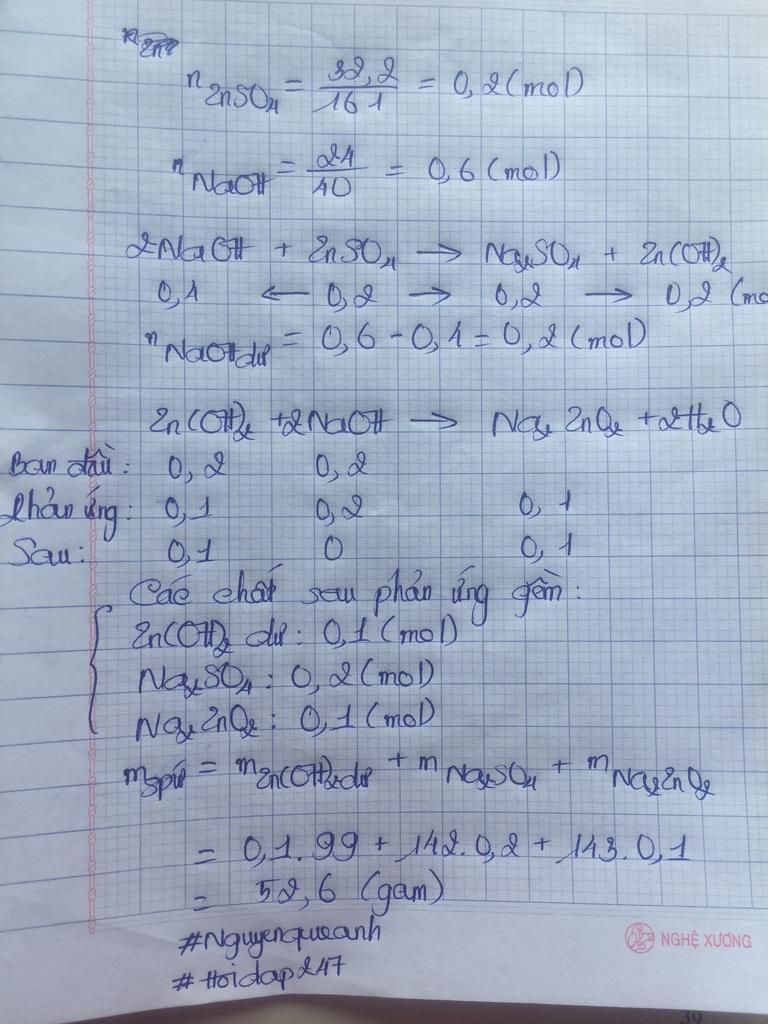 nZnSO4 = 32,2/161 = 0,2 (mol)
nNaOH = 24/40 = 0,6 (mol)
2NaOH + ZnSO4 → Na2SO4 + Zn(OH)2
0,4 ← 0,2 → 0,2 → 0,2 (mo
nNaOH dư = 0,6 - 0,4 = 0,2 (mol)
Zn(OH)2 + 2NaOH → Na2ZnO2 + 2H2O
Ban đầu: 0,2 0,2
Phản ứng: 0,1 0,2 0,1
Sau: 0,1 0 0,1
Các chất sau phản ứng gồm:
Zn(OH)2 dư: 0,1 (mol)
Na2SO4: 0,2 (mol)
Na2ZnO2: 0,1 (mol)
mspứ = mZn(OH)2 dư + mNa2SO4 + mNa2ZnO2
= 0,1.99 + 142.0,2 + 143.0,1
= 52,6 (gam)
#Nguyenqueanh
NGHỆ XƯƠNG
#Hoidap247
39